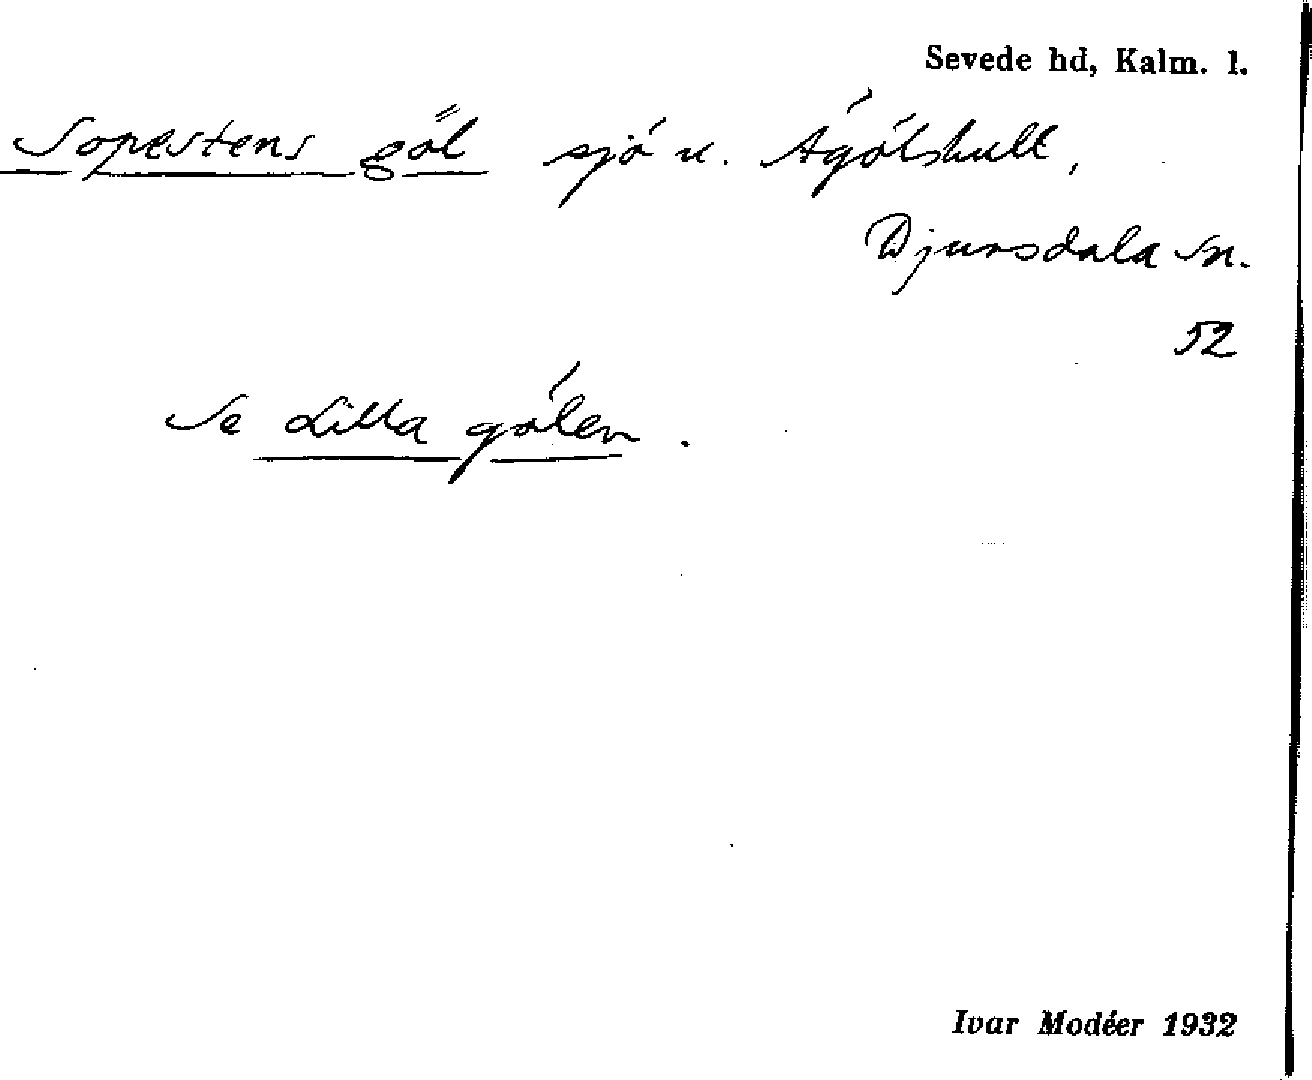 Sevede hd, Kalm. l.
Sopestens göl sjö u. Ågölshult,
Djursdala sn.
52
Se Lilla gölen.
Ivar Modéer 1932